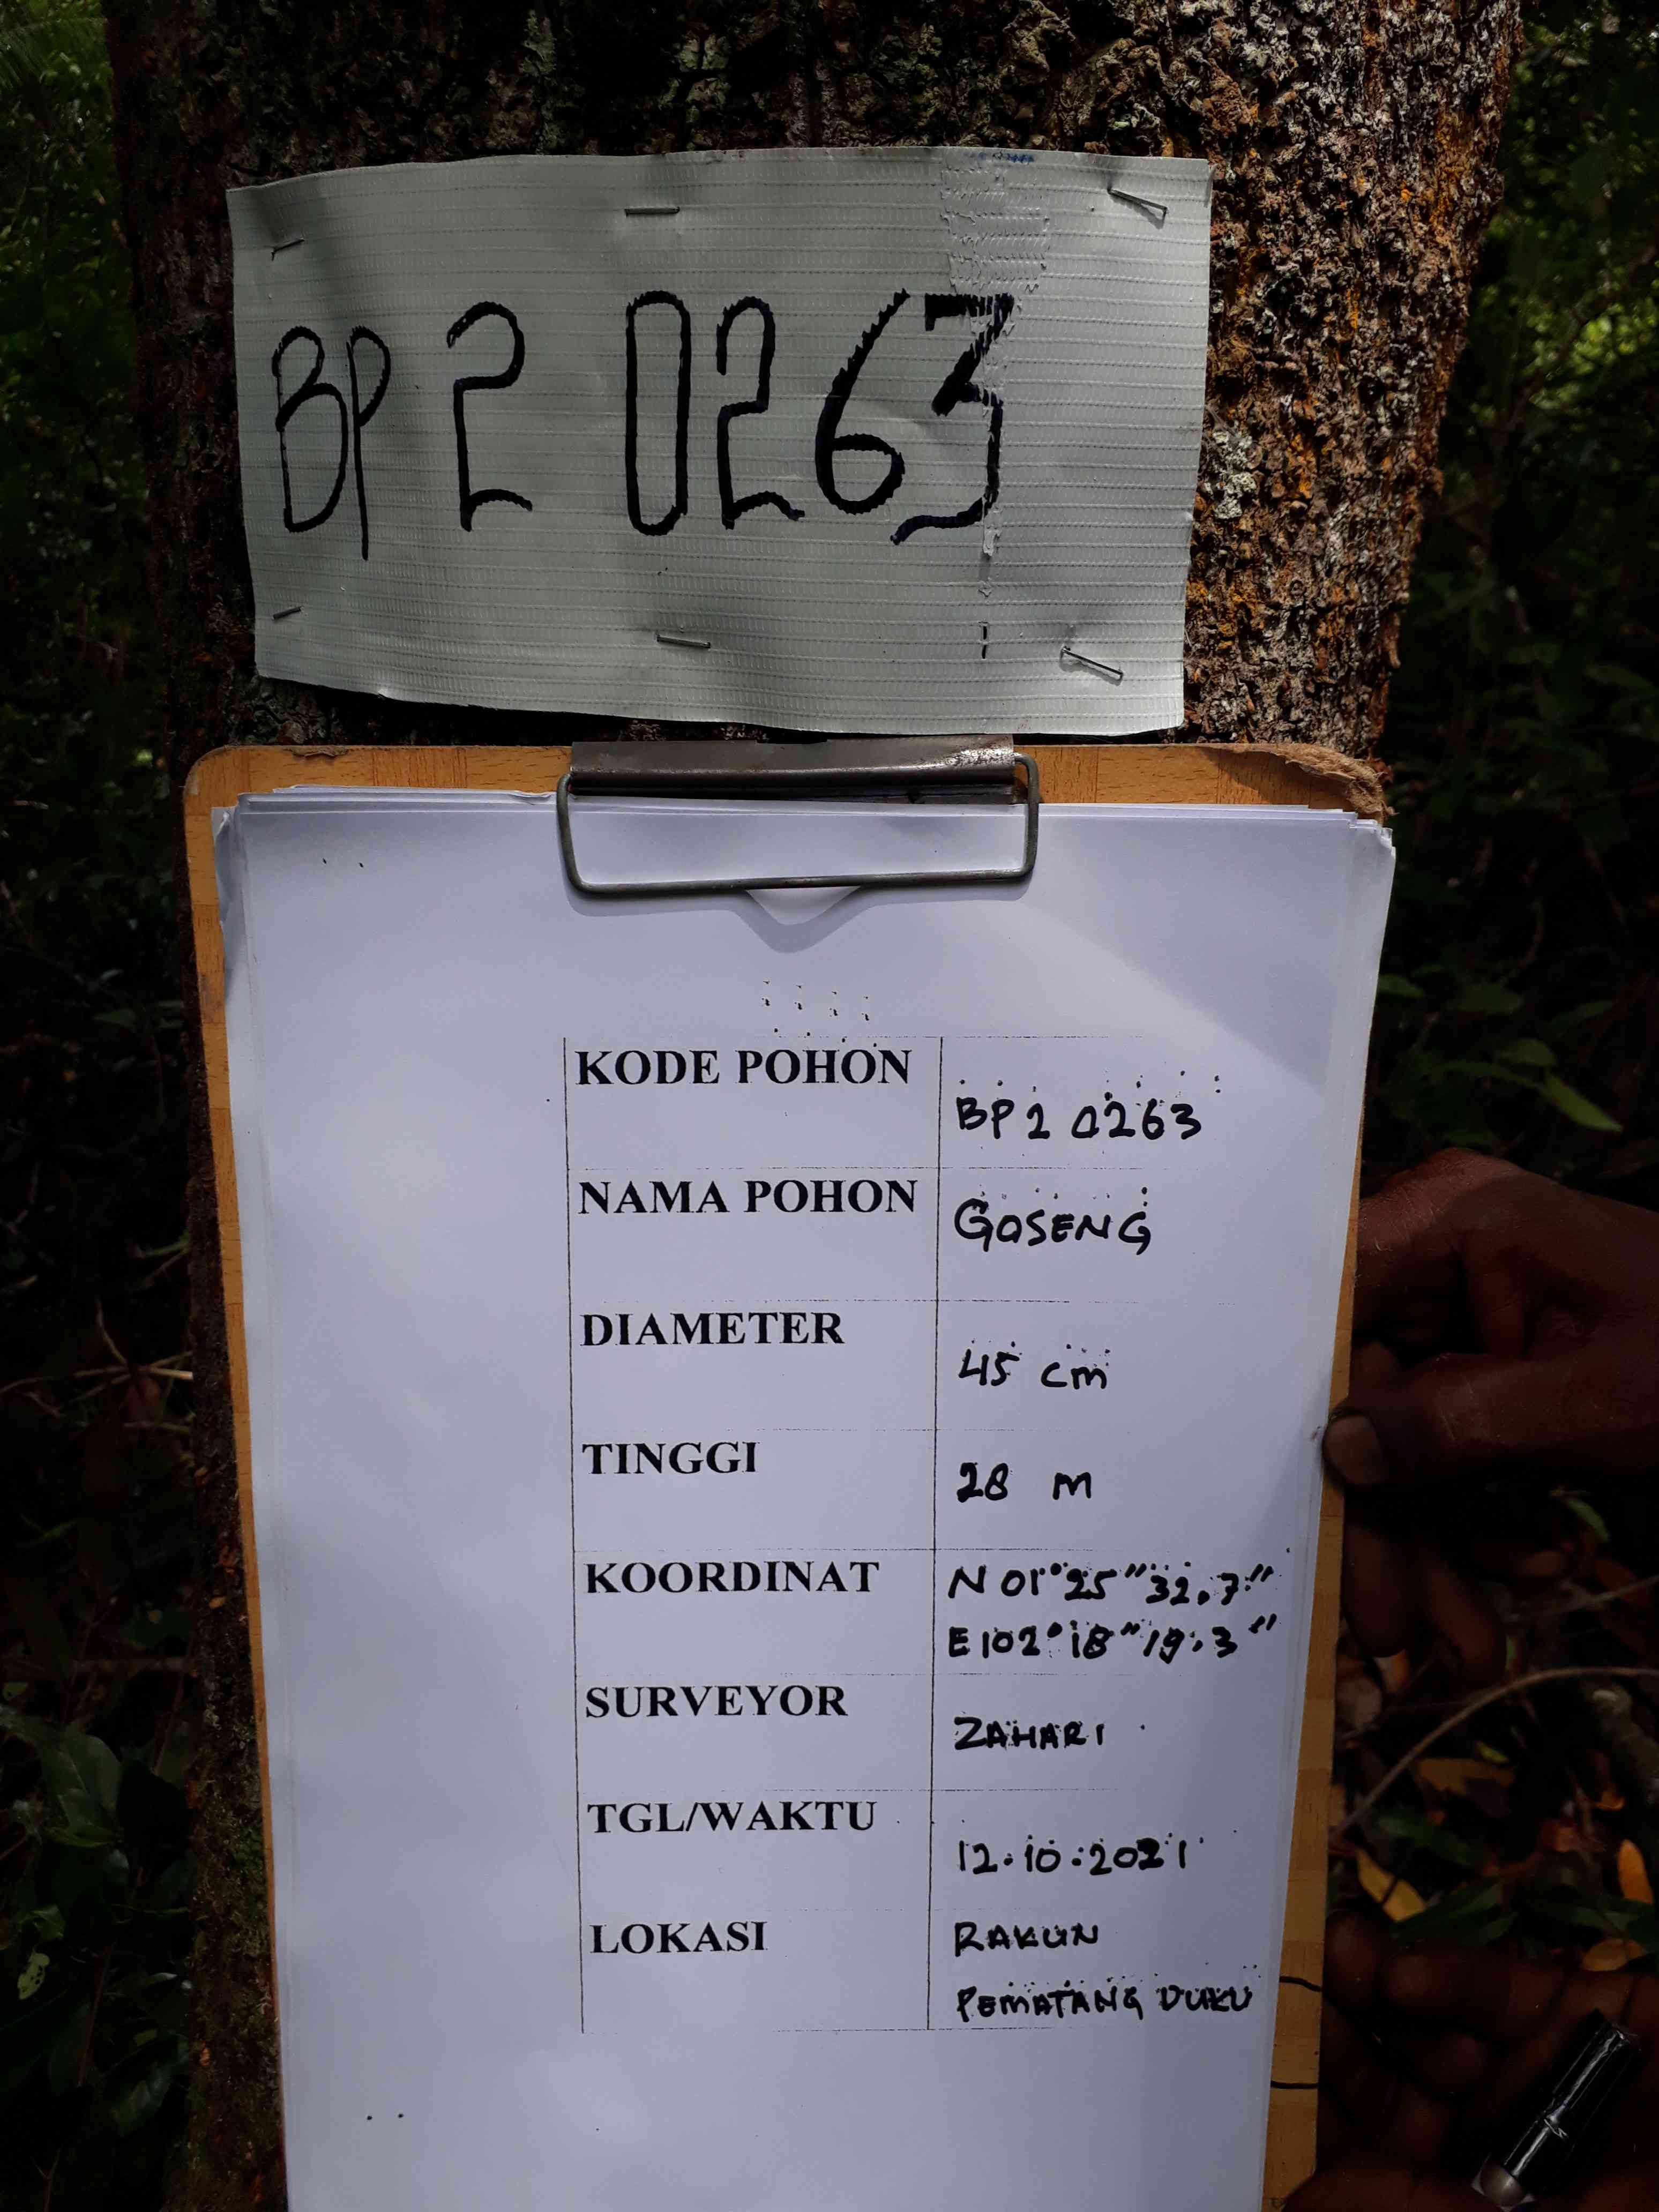 BP 2 0263
KODE POHON BP2 0263
NAMA POHON GOSENG
DIAMETER 45 cm
TINGGI 28 m
KOORDINAT N 01°25"32,7"
E102°18"19,3"
SURVEYOR ZAHARI
TGL/WAKTU 12.10.2021
LOKASI RAKUN
PEMATANG DUKU